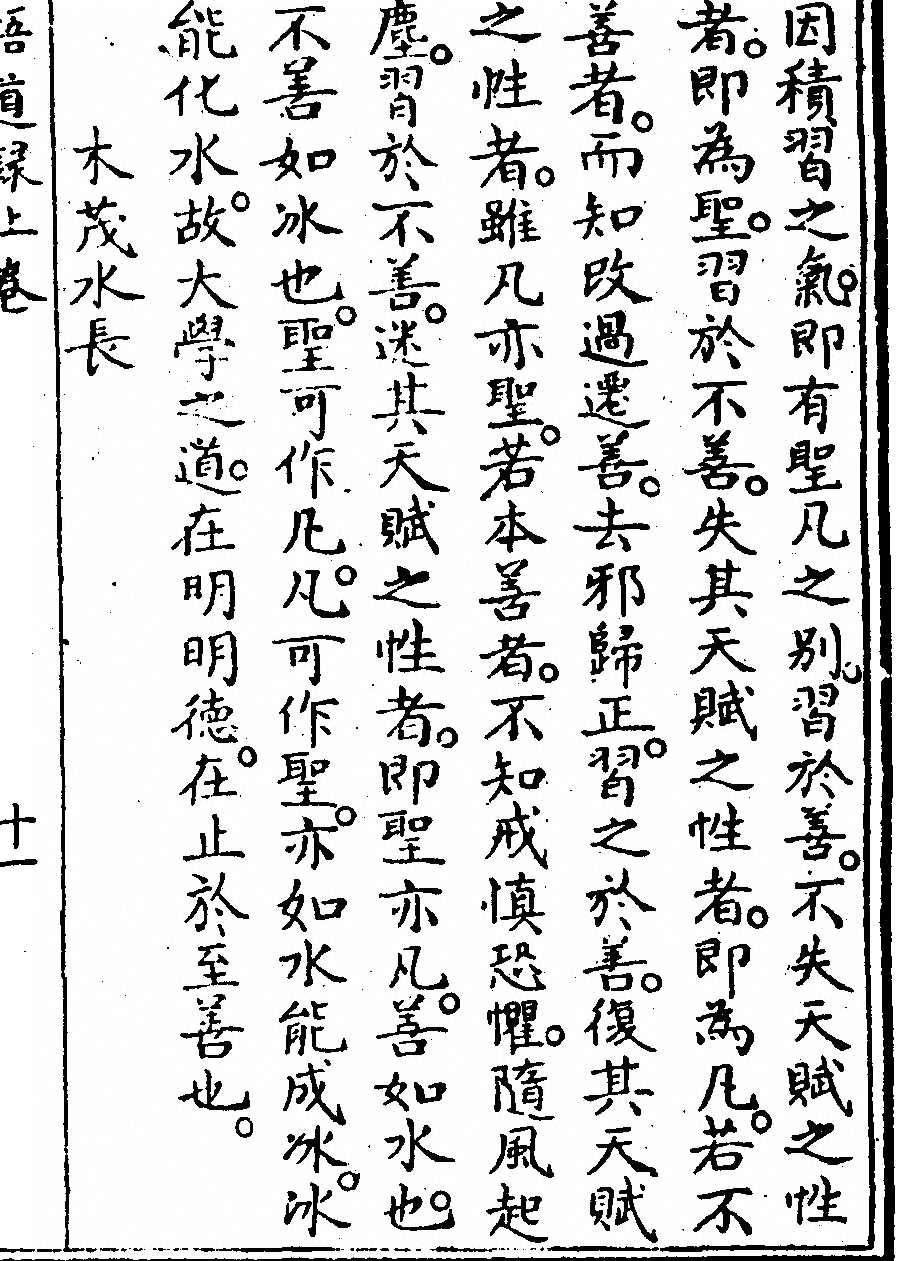 因積習之氣。即有聖凡之別。習於善。不失天賦之性
者。即為聖。習於不善。失其天賦之性者。即為凡。若不
善者。而知改過遷善。去邪歸正。習之於善。復其天賦
之性者。雖凡亦聖。若本善者。不知戒慎恐懼。隨風起
塵。習於不善。迷其天賦之性者。即聖亦凡。善如水也。
不善如冰也。聖可作凡。凡可作聖。亦如水能成冰。冰
能化水。故大學之道。在明明德。在止於至善也。
木茂水長
悟道錄上卷
十一